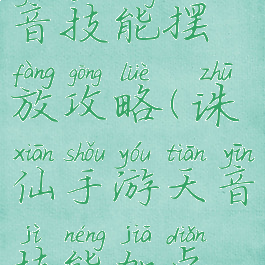 音技能摆
fàng gōng lüè zhū
放攻略(诛
xiān shǒu yóu tiān yīn
仙手游天音
jì néng jiā diǎn
技能加点